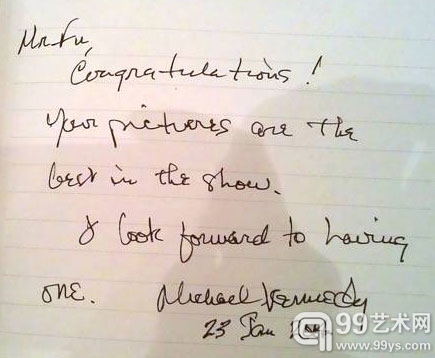 Mr. Fu,
Congratulations!
Your pictures are the
best in the show.
I look forward to having
one. Michael Kennedy
23 Jan
99艺术网
www.99ys.com